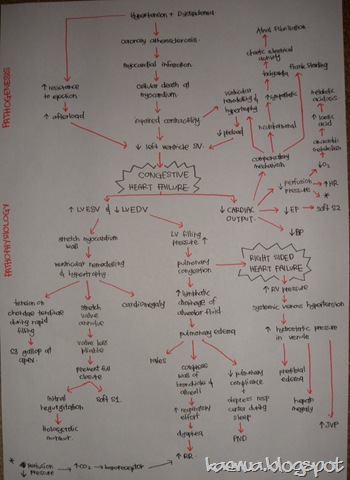 Hypertension + Dyslipidemia
coronary atherosclerosis
myocardial infarction
cellular death of
myocardium
impaired contractility
↑ resistance
to ejection
↑ afterload
↓ left ventricle SV
PATHOGENESIS
Atrial Fibrillation
chaotic electrical
activity
tachycardia
Frank Starling
ventricular
remodelling &
hypertrophy
↑ sympathetic
↓ preload
neurohormonal
compensatory
mechanism
metabolic
acidosis
↑ lactic
acid
anaerobic
metabolism
↓ O₂
↓ perfusion
pressure
↑ HR
*
CONGESTIVE
HEART FAILURE
↓ CARDIAC
OUTPUT
↓ EF
soft S2
↓ BP
PATHOPHYSIOLOGY
↑ LVESV & ↓ LVEDV
stretch myocardium
wall
ventricular remodelling
& hypertrophy
tension on
chordae tendinae
during rapid
filling
S3 gallop at
apex.
stretch
valve
annulus
valve less
pliable
prevent full
closure
mitral
regurgitation
soft S1.
holosystolic
murmur.
cardiomegaly
LV filling
pressure ↑
pulmonary
congestion
↑ lymphatic
drainage of
alveolar fluid
pulmonary edema
rales
compress
wall of
bronchiole &
alveoli
↑ respiratory
effort
dyspnea
↑ RR
↓ pulmonary
compliance
+
depress resp
center during
sleep
PND
RIGHT SIDED
HEART FAILURE
↑ RV pressure
systemic venous hypertension
↑ hydrostatic pressure
in venule
pretibial
edema
hepato
megaly
↑ JVP
* ↓ perfusion
pressure
↑ CO₂
chemoreceptor
kaewua.blogspot